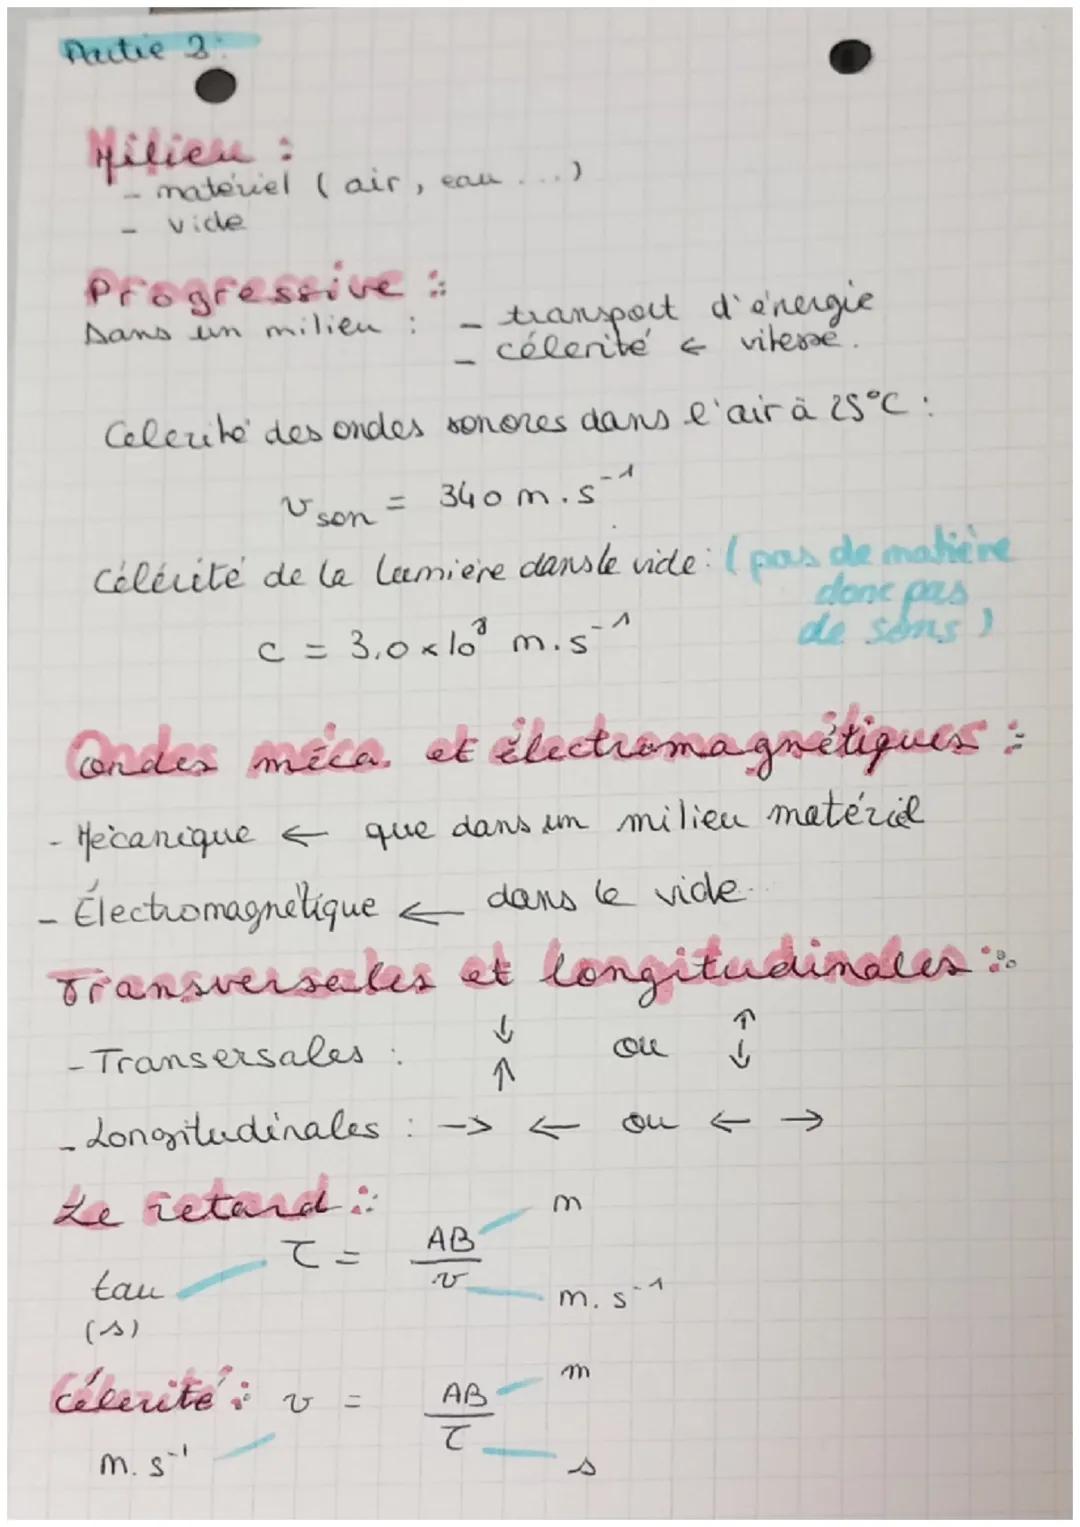 Partie 2:
Milieu :
- matériel (air, eau ...)
- vide
Progressive :
Dans un milieu : - transport d'énergie
- célérité ← vitesse.
Celerité des ondes sonores dans l'air à 25°C :
v son = 340 m.s⁻¹
Célérité de la lumière dans le vide : (pas de matière
donc pas
de sons)
c = 3,0 × 10⁸ m.s⁻¹
Ondes méca. et électromagnétiques :
- Mécanique ← que dans un milieu matériel
- Électromagnétique ← dans le vide...
Transversales et longitudinales :
- Transersales : ↓ ↑ ou ↑ ↓
- Longitudinales : → ← ou ← →
Le retard :
τ = AB / v
m
tau
(s)
m.s⁻¹
Célerité : v = AB / τ
m
m.s⁻¹
s